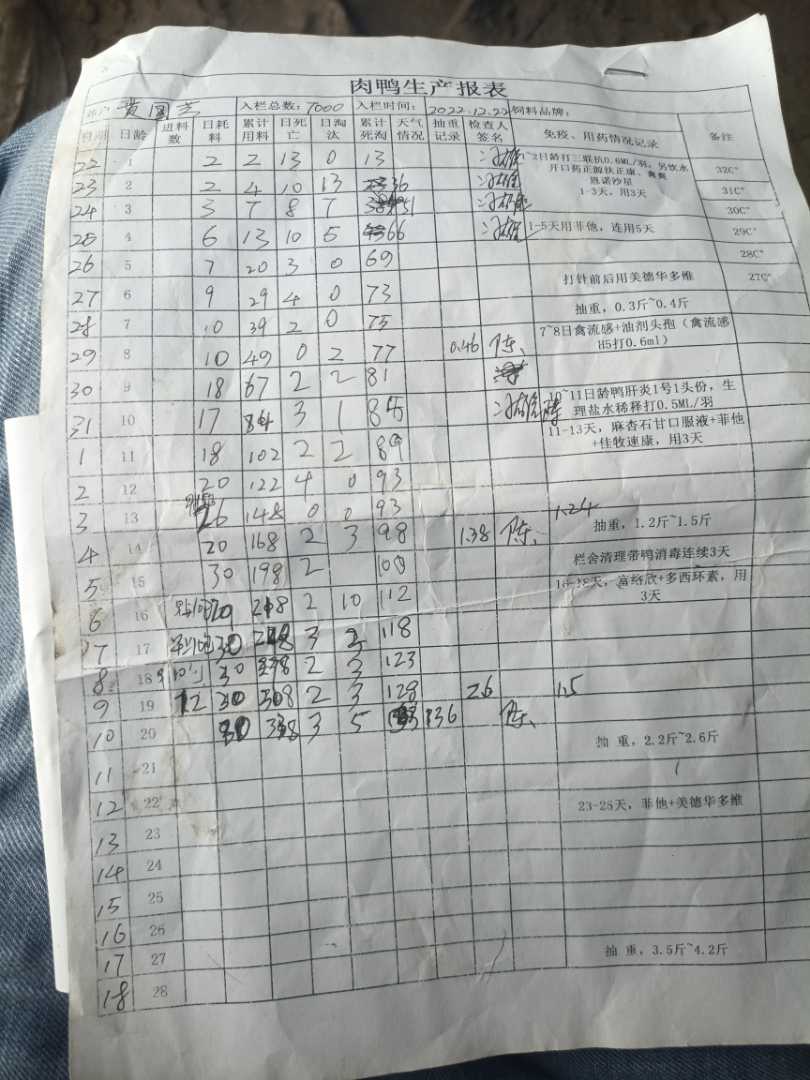 肉鸭生产报表
入栏总数: 7000 入栏时间: 2022.12.22 饲料品牌:
日期 日龄 进料数 日耗料 累计用料 日死亡 日淘汰 累计死淘 天气情况 抽重记录 检查人签名 免疫、用药情况记录 备注
22 1 2 2 13 0 13 32C°
2日龄打三联抗0.6ML/羽,另饮水
开口药正源扶正康、禽爽
恩诺沙星
1-3天,用3天
23 2 2 4 10 13 36 31C°
24 3 3 7 8 7 51 30C°
25 4 6 13 10 5 66 1-5天用菲他,连用5天 29C°
26 5 7 20 3 0 69 28C°
打针前后用美德华多维 27C°
27 6 9 29 4 0 73
抽重,0.3斤~0.4斤
28 7 10 39 2 0 75
7~8日禽流感+油剂头孢(禽流感
H5打0.6ml)
29 8 10 49 0 2 77 0.46 陈、
30 9 18 67 2 2 81
~11日龄鸭肝炎1号1头份,生
理盐水稀释打0.5ML/羽
31 10 17 84 3 1 85
11-13天,麻杏石甘口服液+菲他
+佳牧速康,用3天
1 11 18 102 2 2 89
2 12 20 122 4 0 93
3 13 26 148 0 0 93 1.24
抽重,1.2斤~1.5斤
4 14 20 168 2 3 98 1.38 陈、
栏舍清理带鸭消毒连续3天
5 15 30 198 2 100
天,富络欣+多西环素,用
3天
6 16 20 218 2 10 112
7 17 30 3 2 118
8 18 30 2 3 123
9 19 12 30 308 2 3 128 2.6 1.5
10 20 30 338 3 5 136 陈、
抽 重,2.2斤~2.6斤
11 21
12 22 23-25天,菲他+美德华多维
13 23
14 24
15 25
16 26
17 27 抽 重,3.5斤~4.2斤
18 28